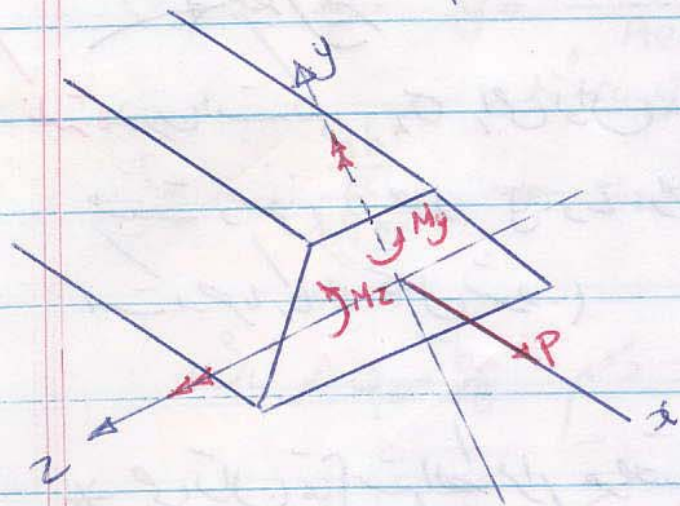 y
My
Mz
P
x
z